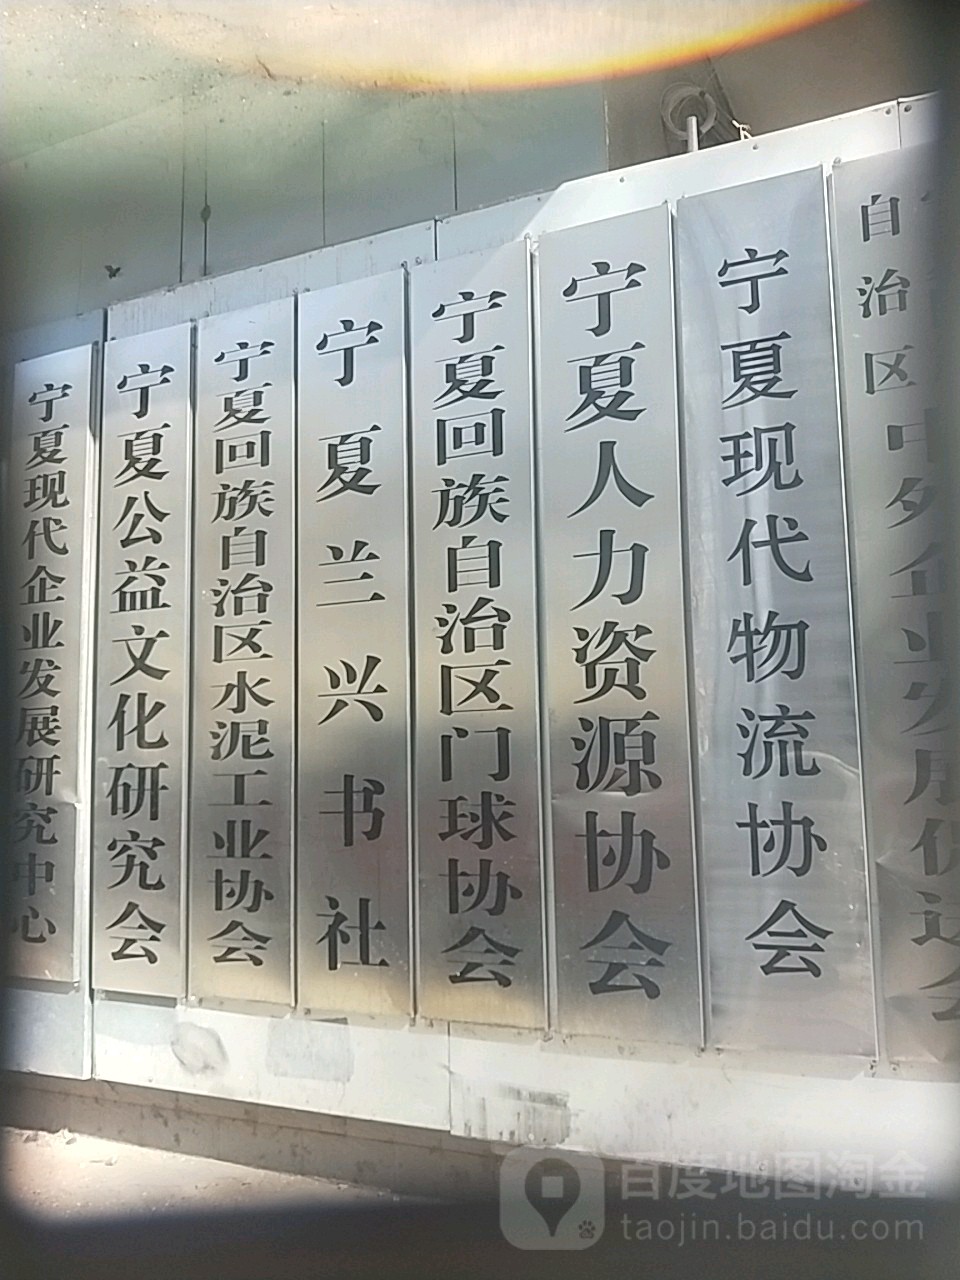 宁夏现代企业发展研究中心
宁夏公益文化研究会
宁夏回族自治区水泥工业协会
宁夏兰兴书社
宁夏回族自治区门球协会
宁夏人力资源协会
宁夏现代物流协会
自治区中外企业发展促进会
百度地图淘金
taojin.baidu.com